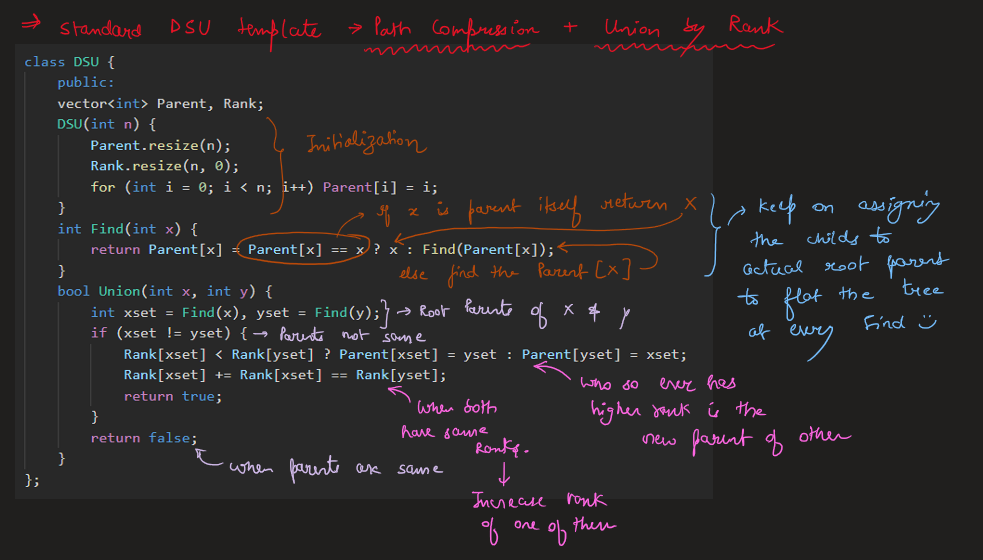 ⇒ Standard DSU template → Path Compression + Union by Rank
class DSU {
public:
vector<int> Parent, Rank;
DSU(int n) {
Parent.resize(n);
Rank.resize(n, 0);
for (int i = 0; i < n; i++) Parent[i] = i;
}
Initialization
int Find(int x) {
return Parent[x] = Parent[x] == x ? x : Find(Parent[x]);
}
If x is parent itself return X
else find the Parent [X]
→ Keep on assigning
the childs to
actual root parent
to flat the tree
at every Find
bool Union(int x, int y) {
int xset = Find(x), yset = Find(y);
→ Root Parents of X & y
if (xset != yset) {
→ Parents not same
Rank[xset] < Rank[yset] ? Parent[xset] = yset : Parent[yset] = xset;
Rank[xset] += Rank[xset] == Rank[yset];
return true;
}
return false;
}
};
who so ever has
higher rank is the
new parent of other
when both
have same
Ranks.
↓
Increase rank
of one of them
when parents are same